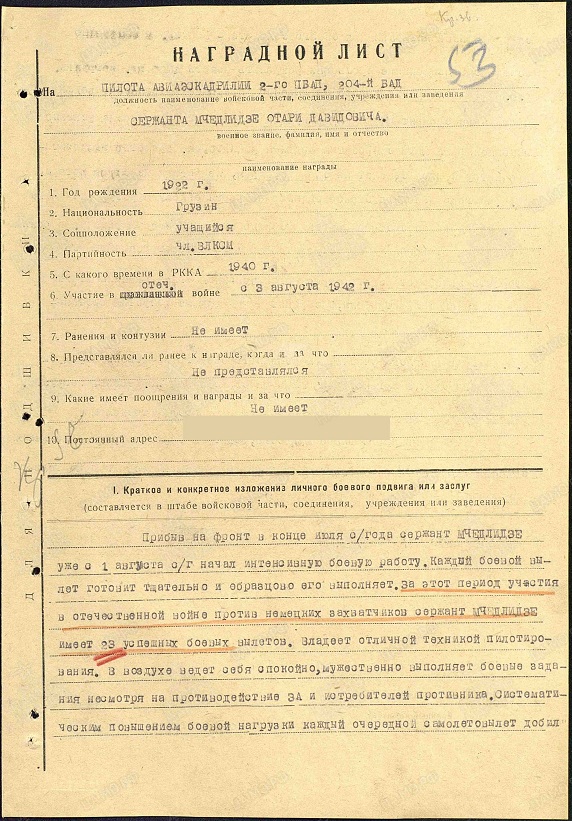 53
НАГРАДНОЙ ЛИСТ
На ПИЛОТА АВИАЭСКАДРИЛИИ 2-го ПБАП, 204-й БАД
должность наименование войсковой части, соединения, учреждения или заведения
СЕРЖАНТА МЧЕДЛИДЗЕ ОТАРИ ДАВИДОВИЧА.
военное звание, фамилия, имя и отчество
наименование награды
1. Год рождения 1922 г.
2. Национальность Грузин
3. Соцположение учащийся
4. Партийность чл.ВЛКСМ
5. С какого времени в РККА 1940 г.
отеч.
6. Участие в гражданской войне с 3 августа 1942 г.
7. Ранения и контузии Не имеет
8. Представлялся ли ранее к награде, когда и за что
Не представлялся
9. Какие имеет поощрения и награды и за что
Не имеет
10. Постоянный адрес
I. Краткое и конкретное изложение личного боевого подвига или заслуг
(составляется в штабе войсковой части, соединения, учреждения или заведения)
Прибыв на фронт в конце июля с/года сержант МЧЕДЛИДЗЕ
уже с 1 августа с/г начал интенсивную боевую работу. Каждый боевой вы-
лет готовит тщательно и образцово его выполняет. За этот период участия
в отечественной войне против немецких захватчиков сержант МЧЕДЛИДЗЕ
имеет 23 успешных боевых вылетов. Владеет отличной техникой пилотиро-
вания. В воздухе ведет себя спокойно, мужественно выполняет боевые зада-
ния несмотря на противодействие ЗА и истребителей противника. Системати-
ческим повышением боевой нагрузки каждый очередной самолетовылет добил
ДЛЯ ПОДШИВКИ